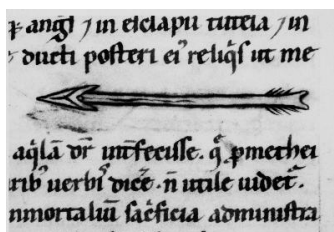 ꝑ angl̄ ⁊ in elclapii tutela ⁊ in
ducti posteri eiꝰ reliq̄s ut me
aq̄lā dr̄ int̄fecisse. q̄ ꝓmethei
ribꝰ uerbꝰ dicē. n̄ utile uidet᷑.
nmortaliū sac̄ficia administra